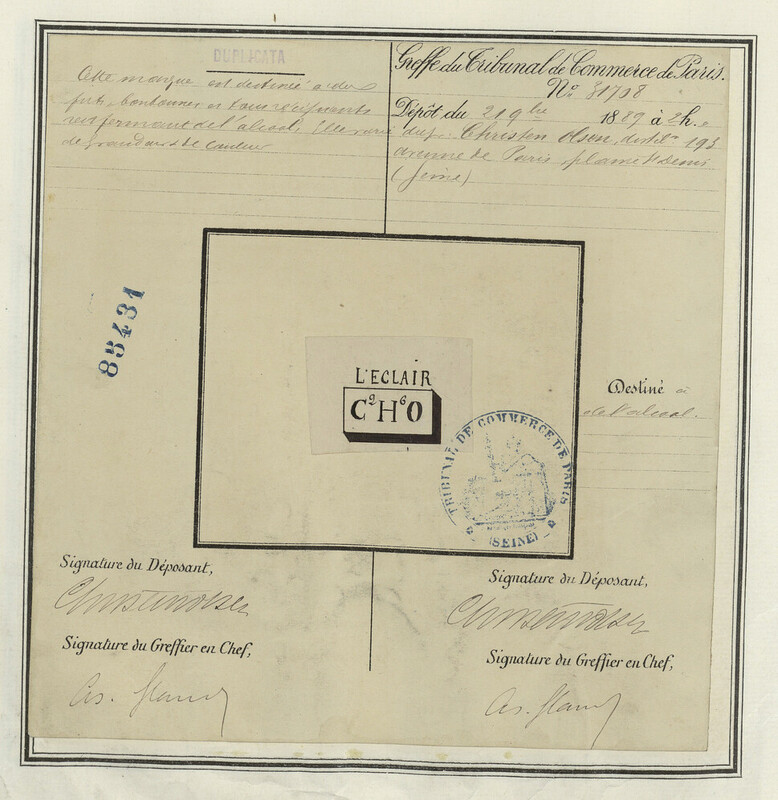 DUPLICATA
Cette marque est destinée à des
futs, bonbonnes et tous récipients
renfermant de l'alcool, Elle varie
de grandeur et de couleur
Greffe du Tribunal de Commerce de Paris.
No. 31708
Dépôt du 21 9bre 1889 à 2h.
Christen Olsen, 193
avenue de Paris, plaine St Denis
(Seine)
85431
L'ECLAIR
C²H⁶O
TRIBUNAL DE COMMERCE DE PARIS
(SEINE)
Destiné à
de l'alcool.
Signature du Déposant,
Christen Olsen
Signature du Greffier en Chef,
Signature du Déposant,
Christen Olsen
Signature du Greffier en Chef,